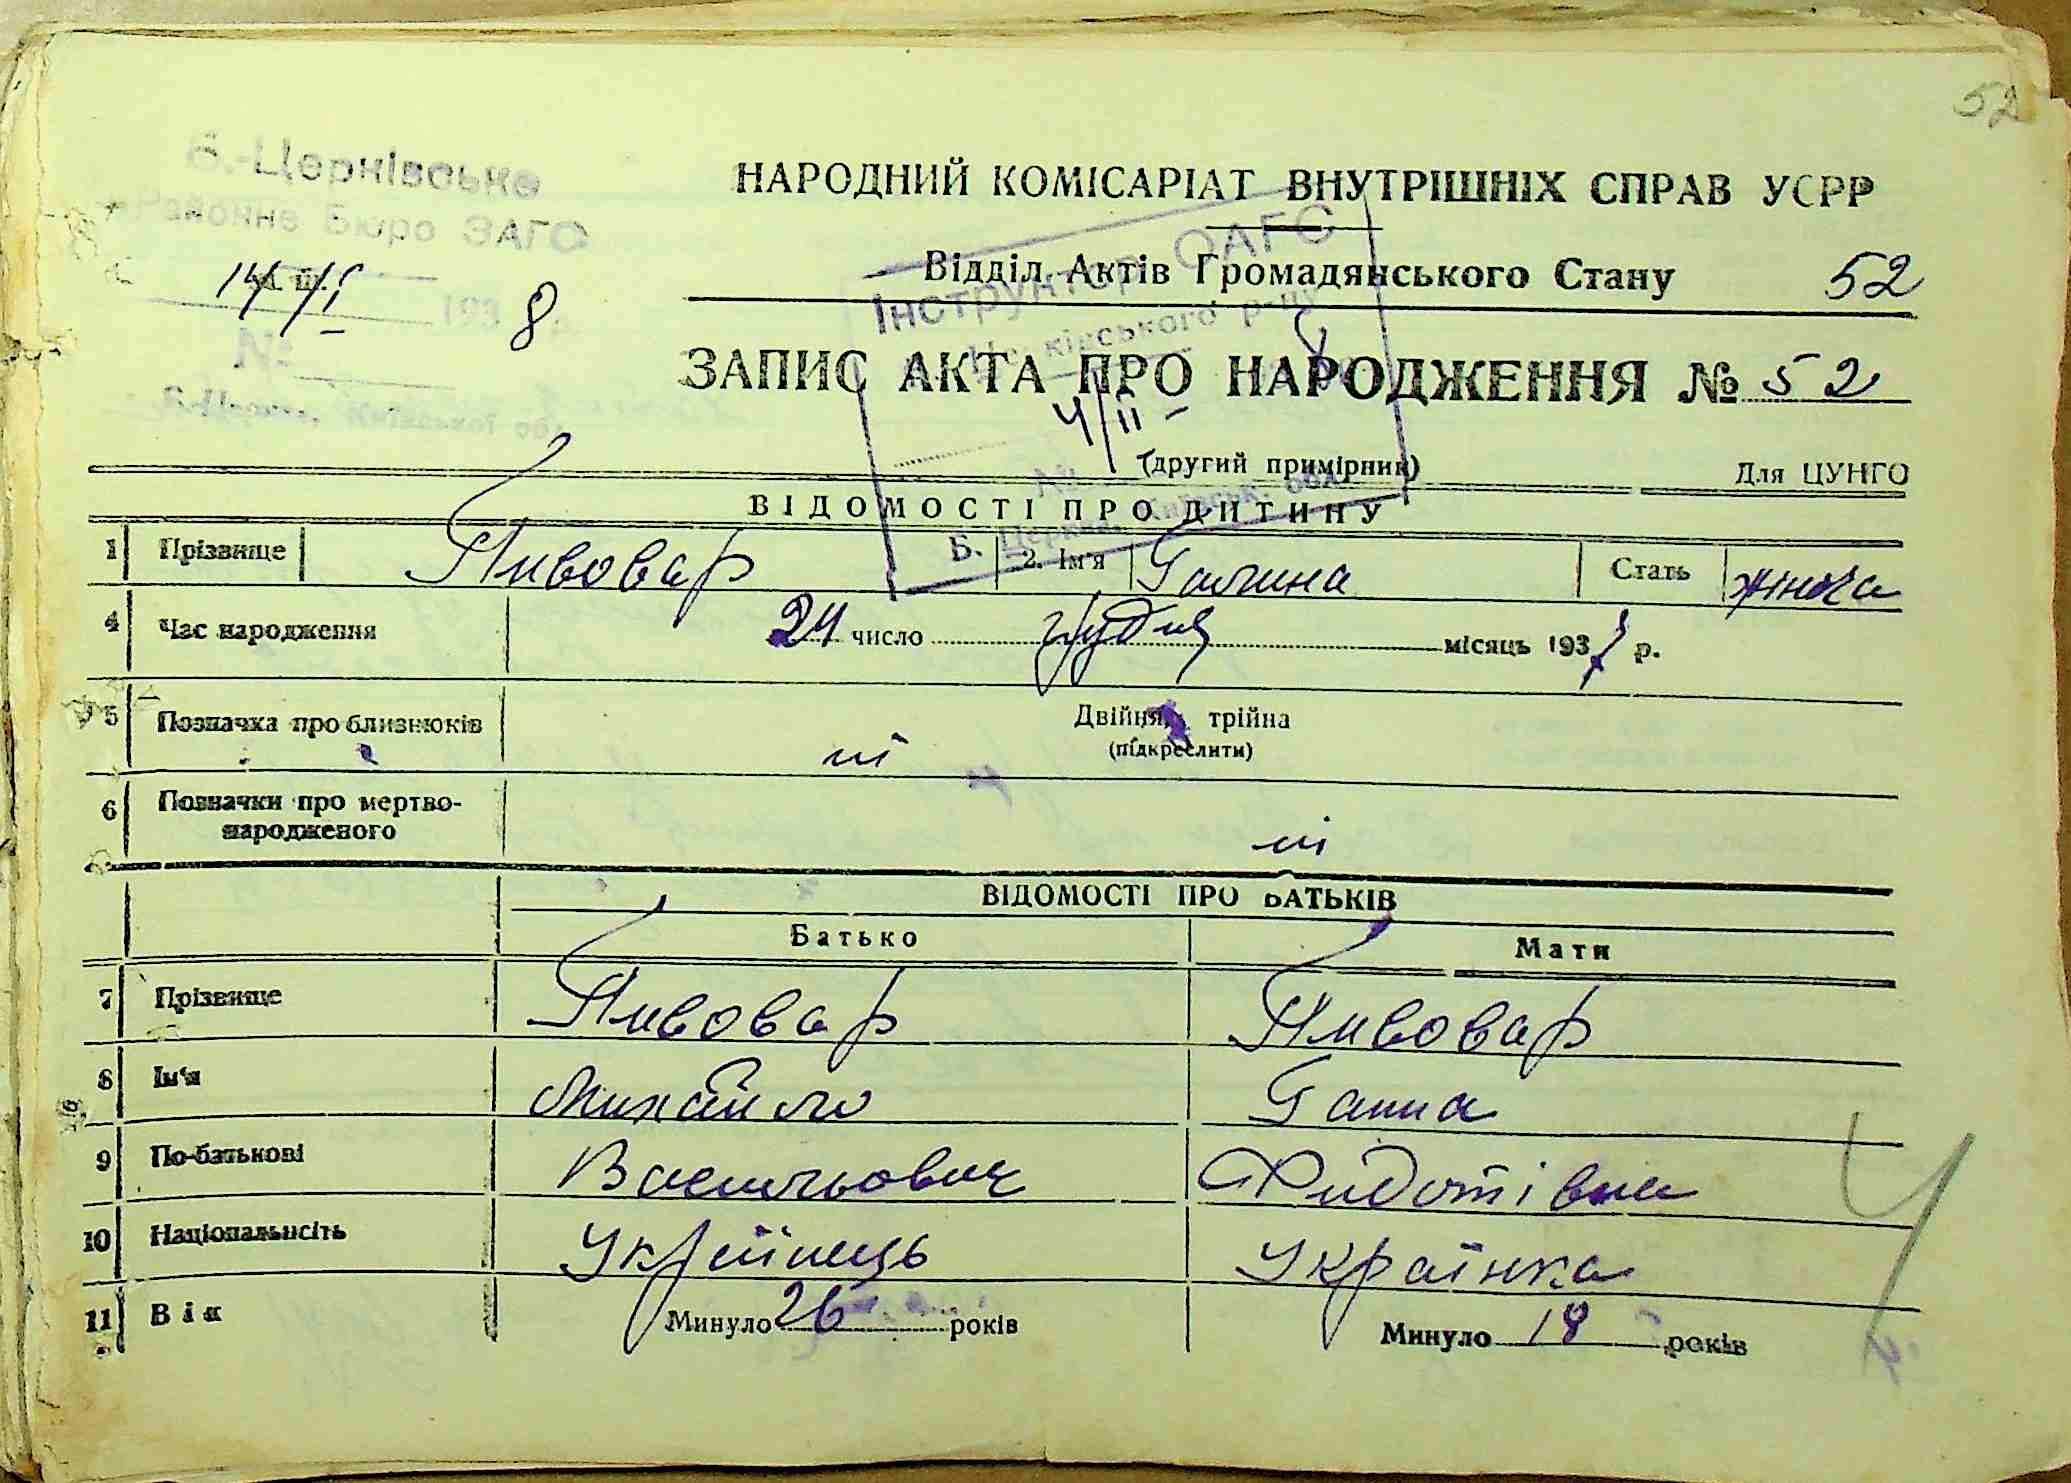 52
Б.-Церківське
Районне Бюро ЗАГС
14/II 1938 р.
№
Б-Церква, Київської обл.
НАРОДНИЙ КОМІСАРІАТ ВНУТРІШНІХ СПРАВ УСРР
Відділ Актів Громадянського Стану 52
ЗАПИС АКТА ПРО НАРОДЖЕННЯ № 52
Інструктор ОАГС
Церківського р-ну
4/II
№
Б. Церква, Київськ. обл.
(другий примірник) Для ЦУНГО
ВІДОМОСТІ ПРО ДИТИНУ
1 Прізвище Пивовар 2. Ім'я Галина Стать жіноча
4 Час народження 24 число грудня місяць 1937 р.
5 Позначка про близнюків ні Двійня, трійна
(підкреслити)
6 Позначки про мертво-
народженого ні
ВІДОМОСТІ ПРО БАТЬКІВ
Батько Мати
7 Прізвище Пивовар Пивовар
8 Ім'я Михайло Ганна
9 По-батькові Васильович Федотівна
10 Національність Українець Українка
11 Вік Минуло 26 років Минуло 18 років